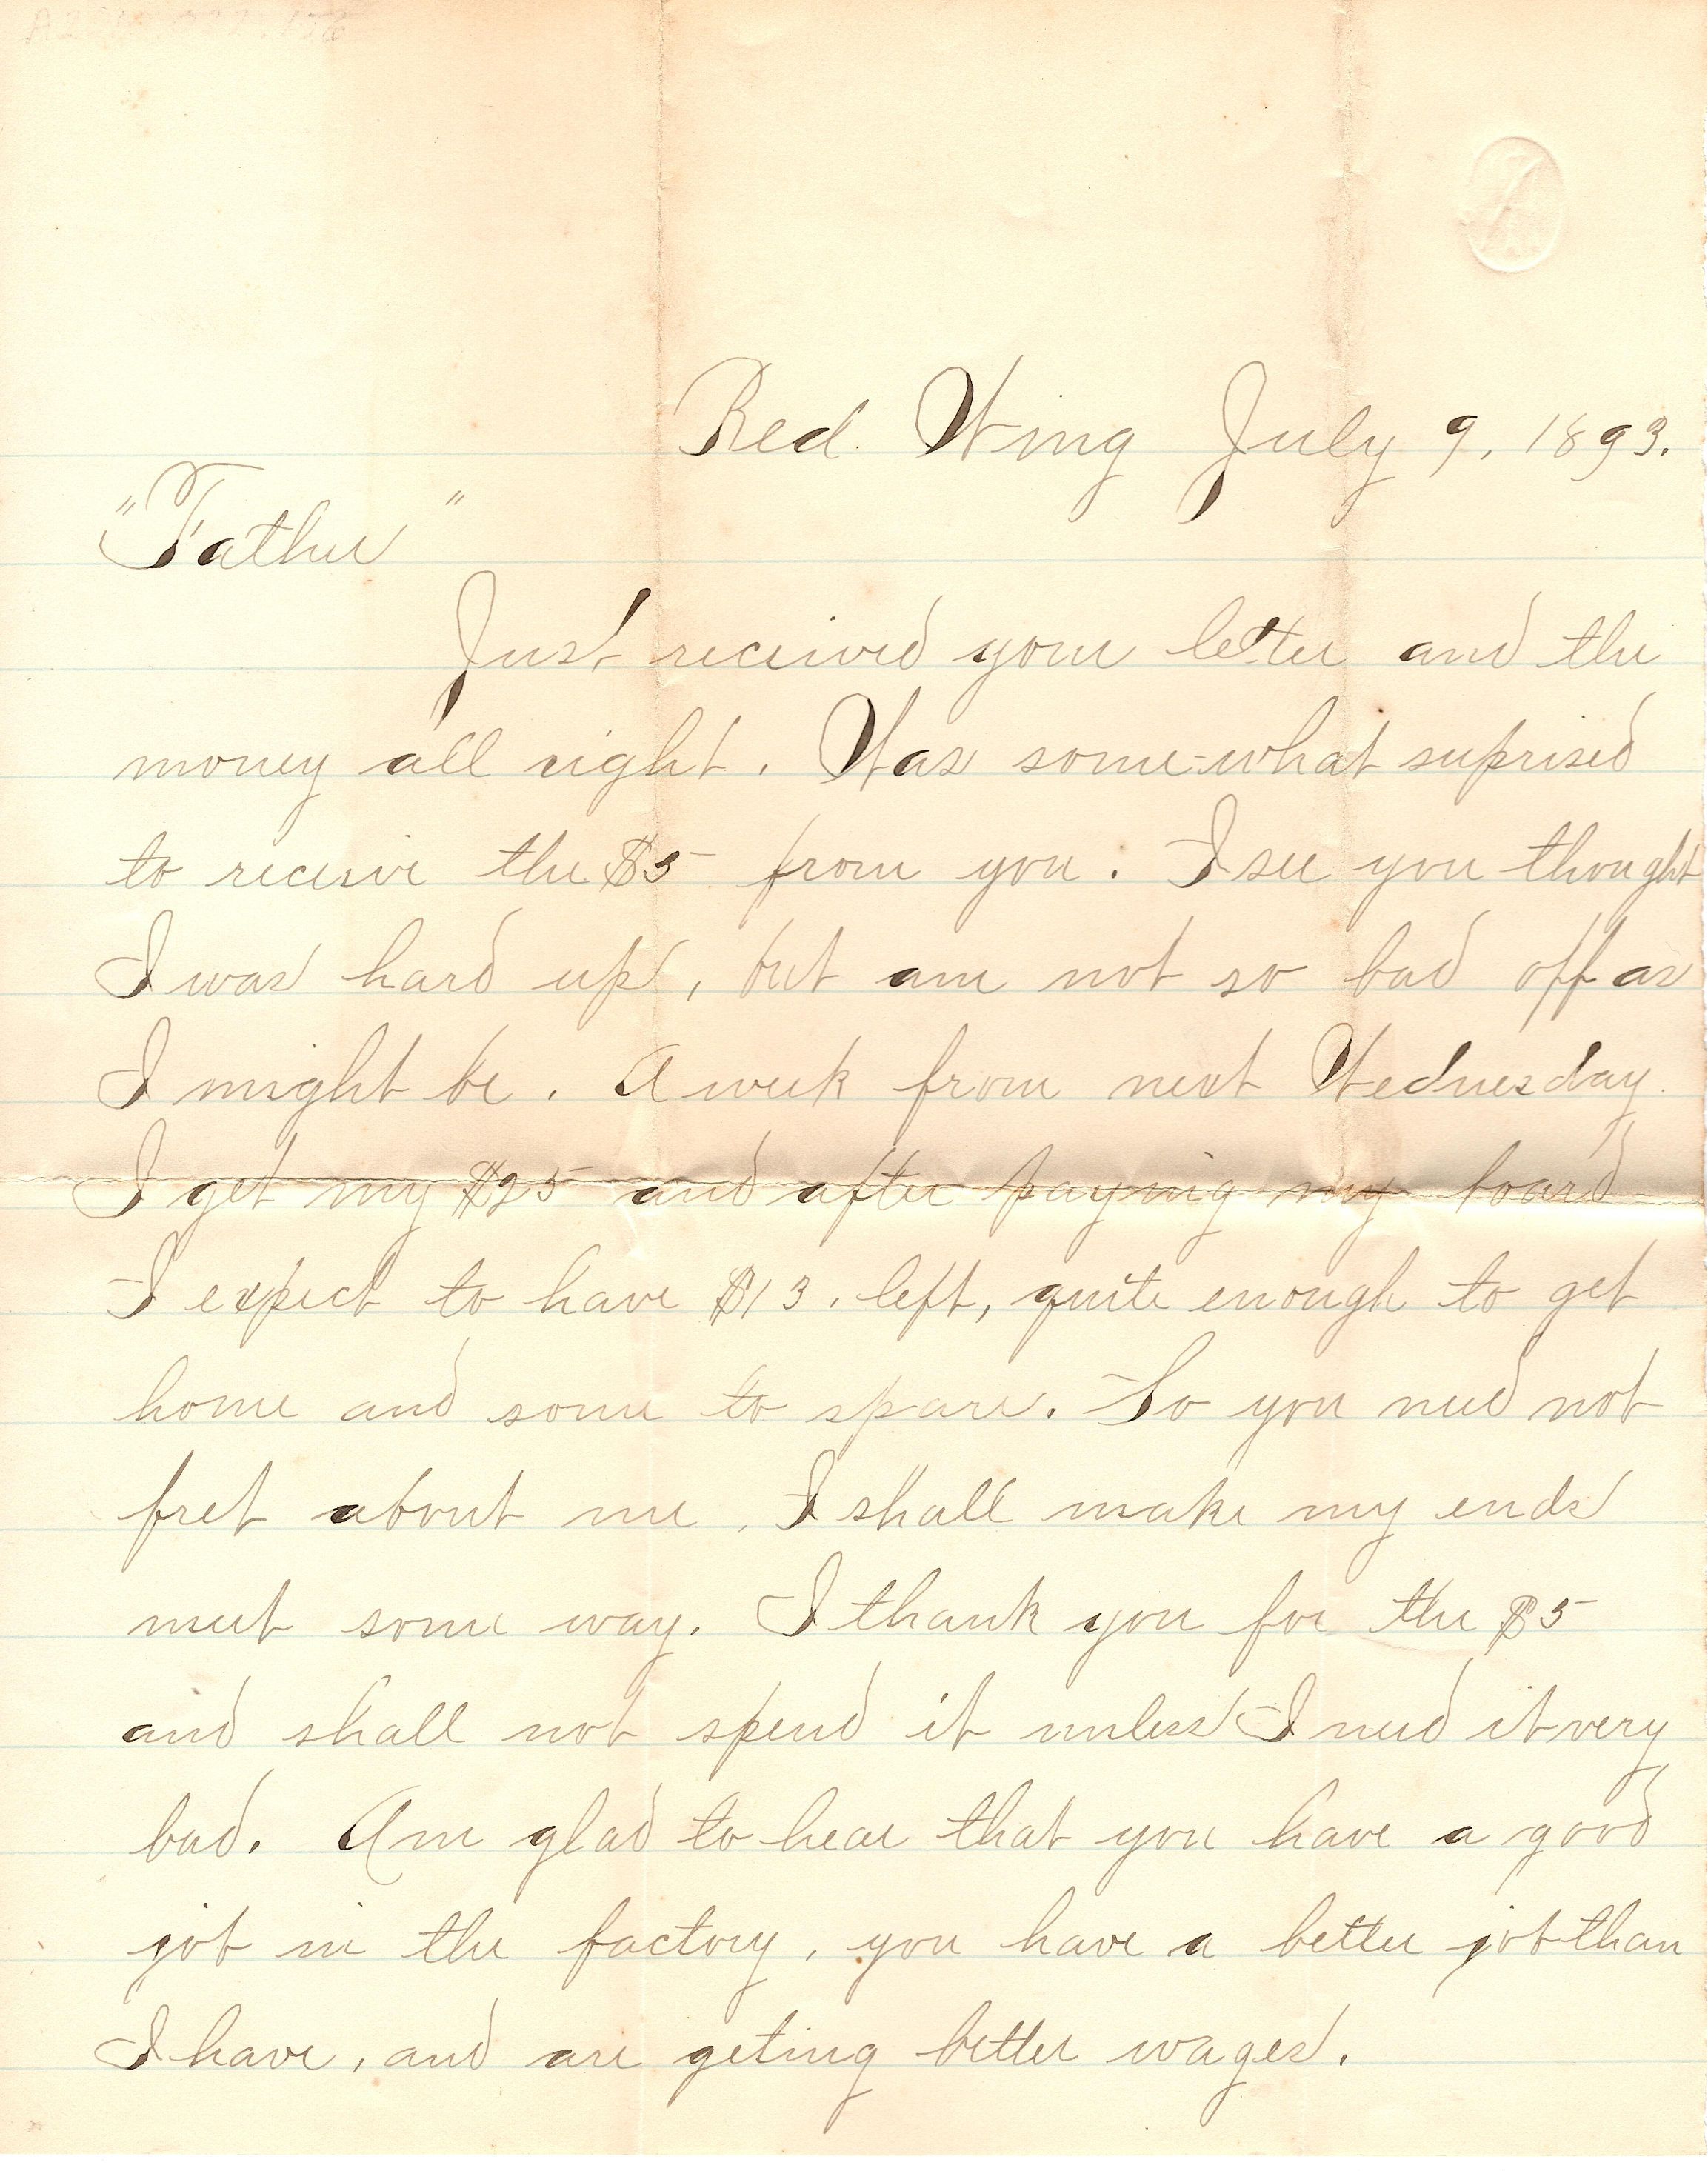 Red Wing July 9, 1893.
"Father"
Just received your letter and the
money all right. Was some-what suprised
to receive the $5 from you. I see you thought
I was hard up, but am not so bad off as
I might be. A week from next Wednesday
I get my $25 and after paying my board
I expect to have $13. left, quite enough to get
home and some to spare. So you need not
fret about me. I shall make my ends
meet some way. I thank you for the $5
and shall not spend it unless I need it very
bad. Am glad to hear that you have a good
job in the factory, you have a better job than
I have, and are geting better wages.